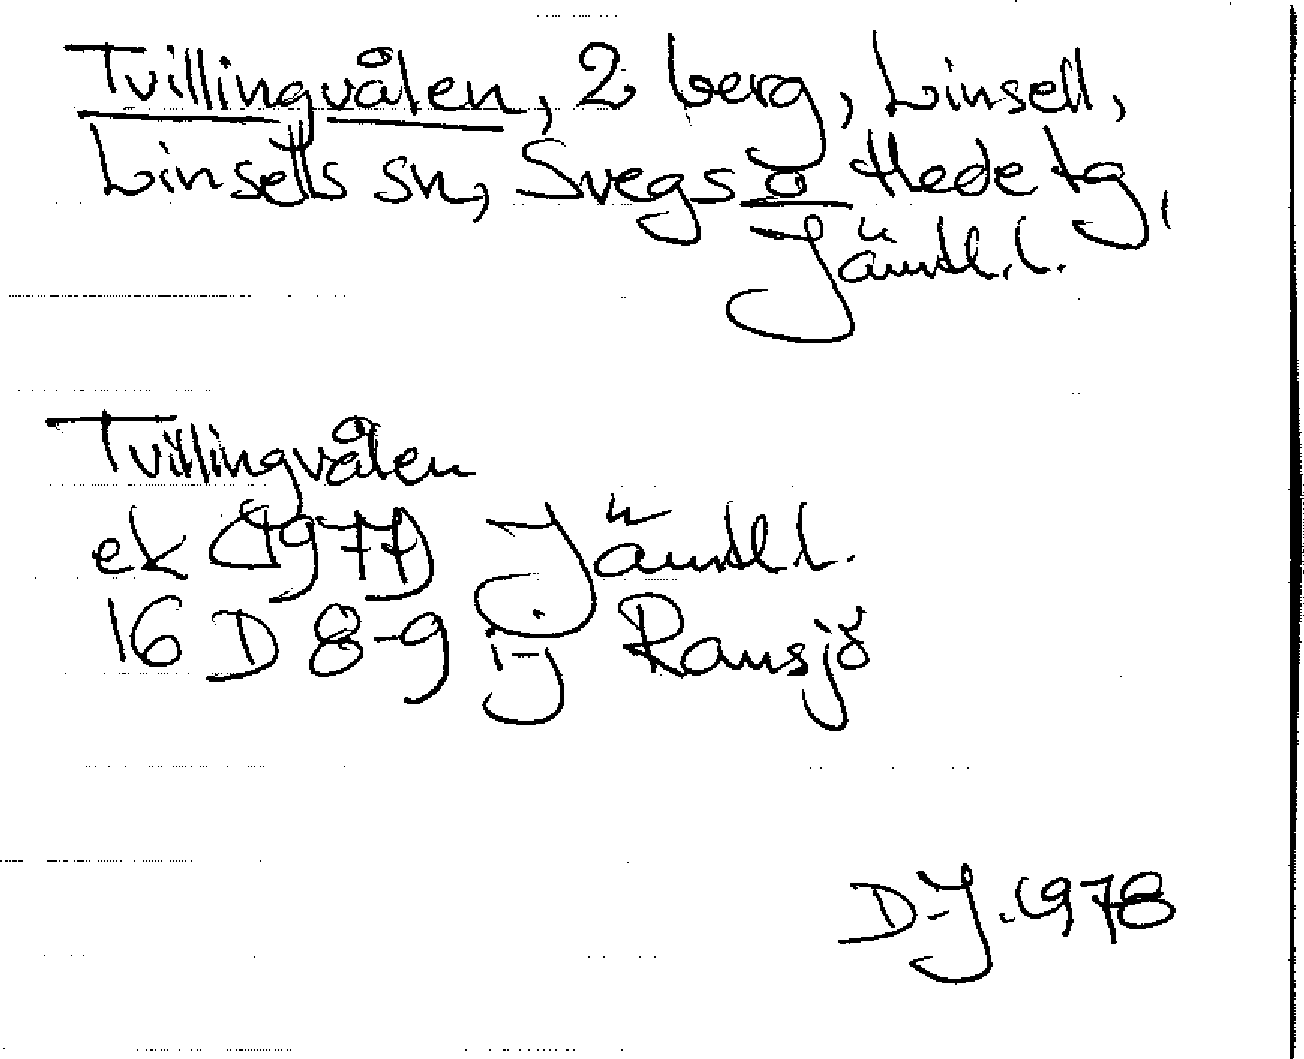 Tvillingvålen, 2 berg, Linsell,
Linsells sn, Svegs o Hede tg,
Jämtl.l.
Tvillingvålen
ek (1977) Jämtl l.
16 D 8-9 i-j Ransjö
D-J. 1978